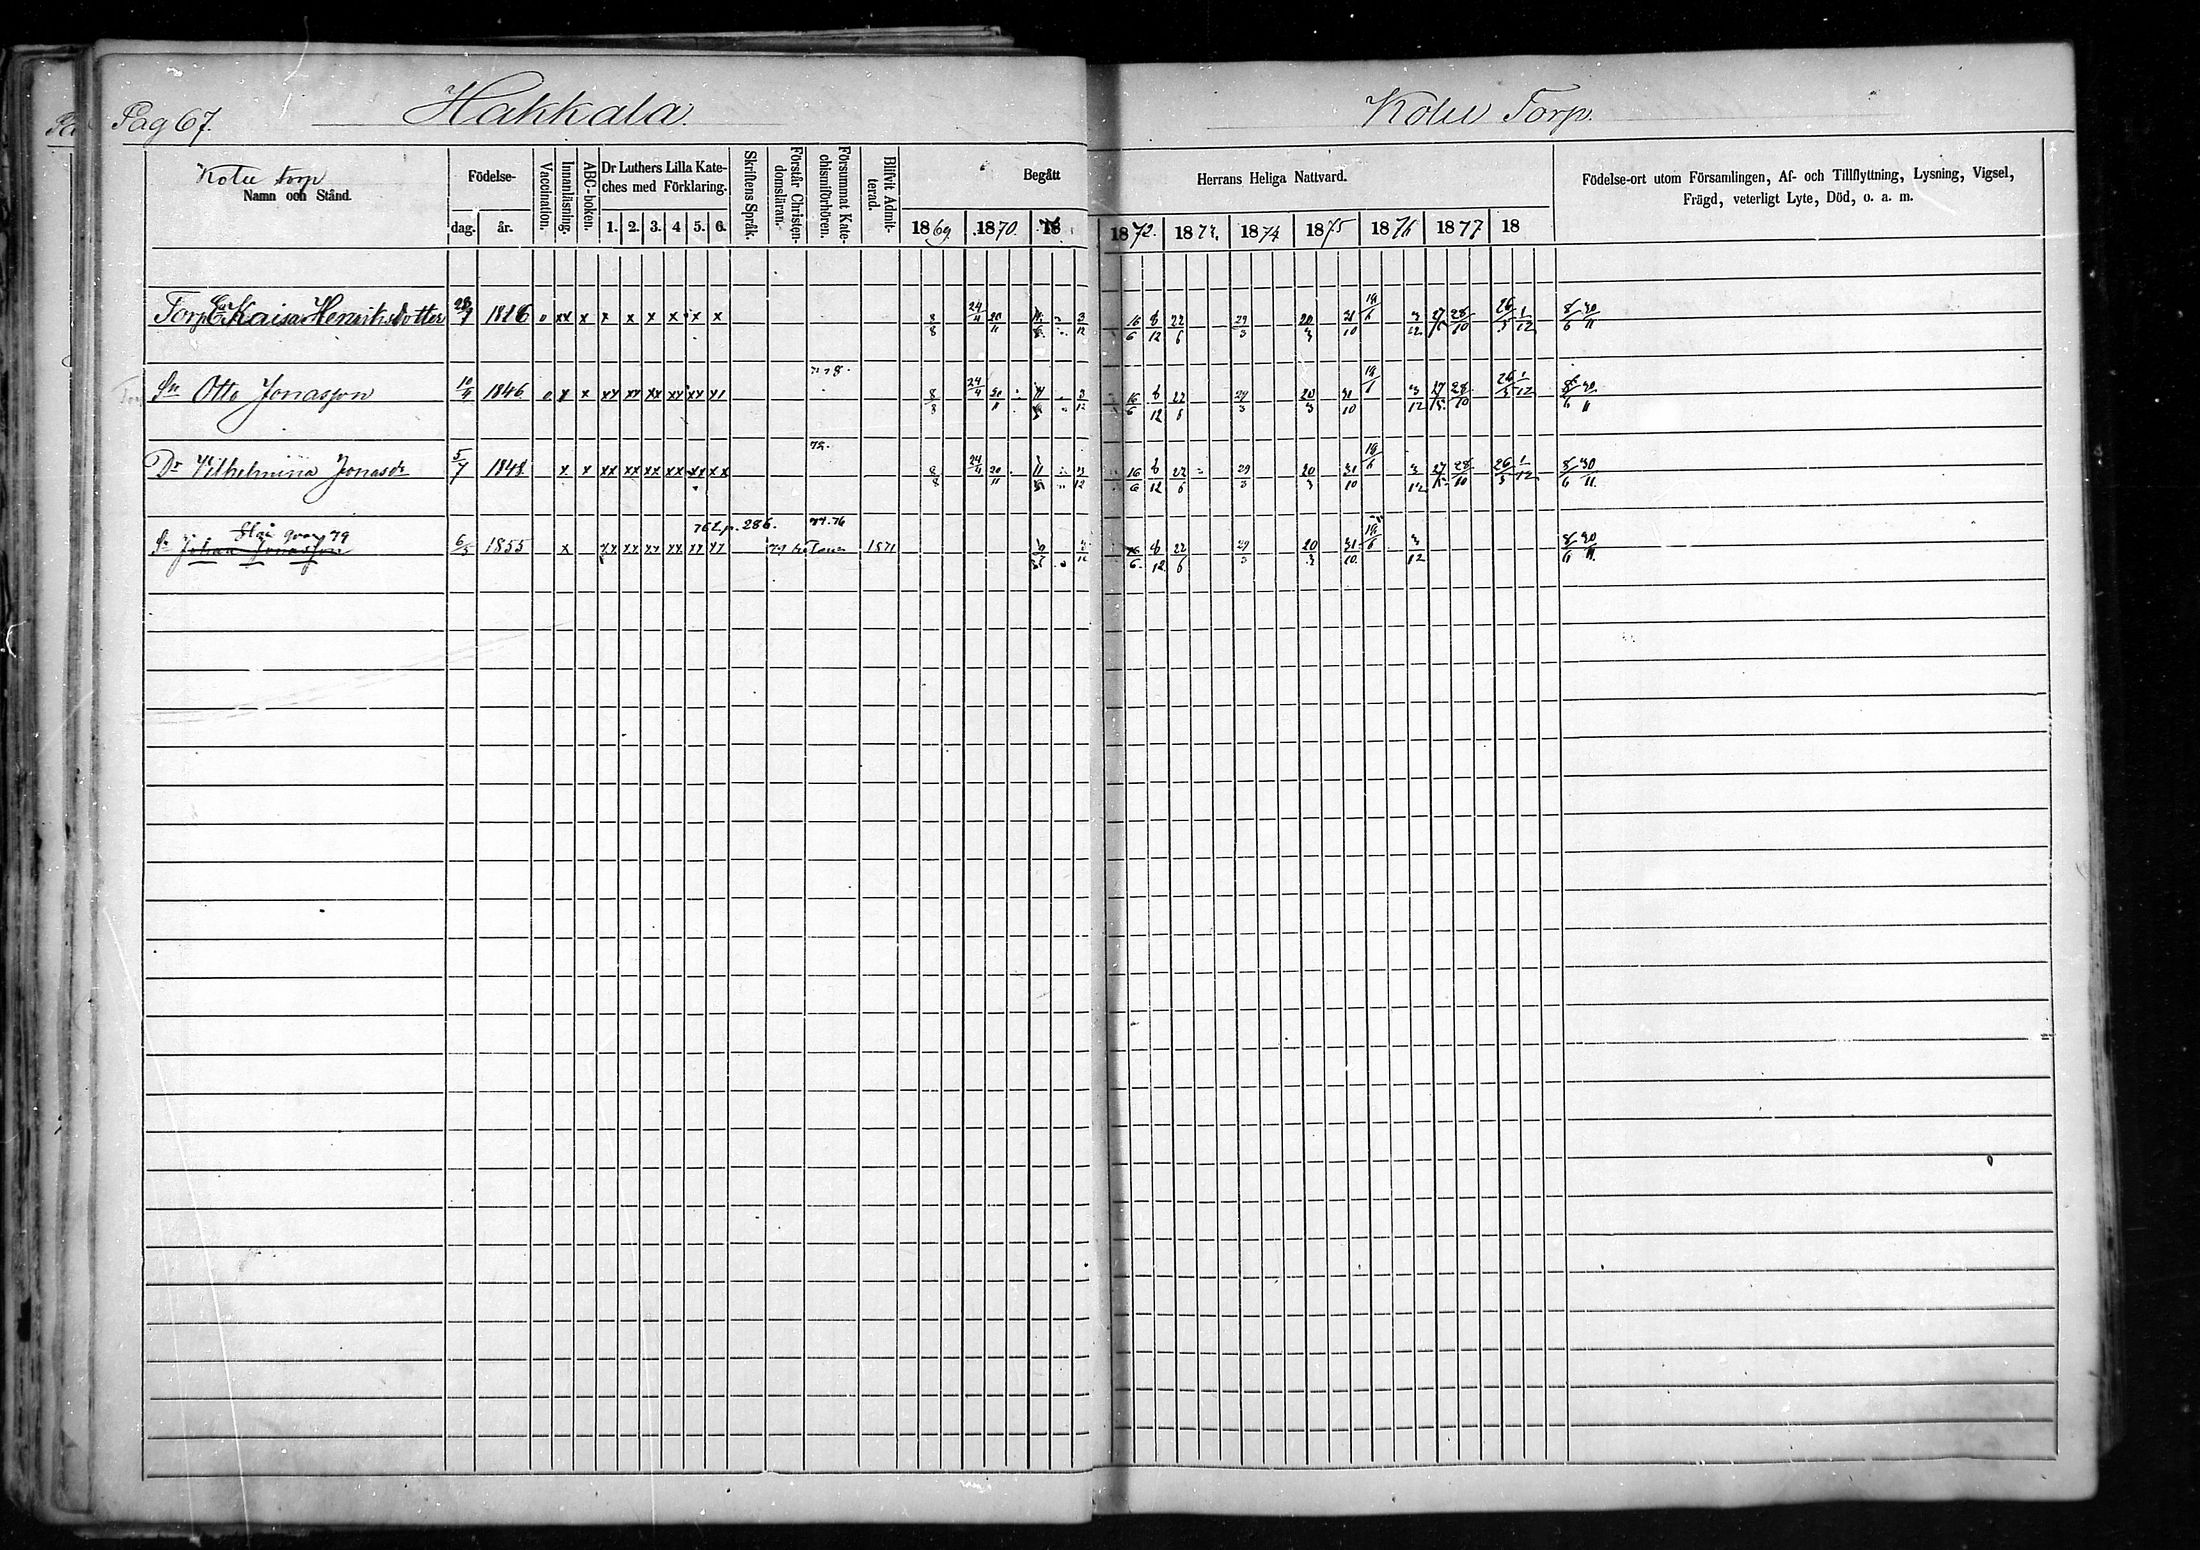 Pag 67. Hakkala. Kotu Torp.
Kotu torp
Namn och Stånd.
Födelse-
dag. år.
Vaccination.
Innanläsning.
ABC-boken.
Dr Luthers Lilla Kate-
ches med Förklaring.
1. 2. 3. 4 5. 6.
Skriftens Språk.
Förstår Christen-
domsläran.
Försummat Kate-
chismiförhören.
Blifvit Admit-
terad.
Begått Herrans Heliga Nattvard.
1869. 1870. 18 1872. 1873. 1874 1875 1876 1877 18
Födelse-ort utom Församlingen, Af- och Tillflyttning, Lysning, Vigsel,
Frägd, veterligt Lyte, Död, o. a. m.
Kaisa Henriksdotter 1816 o xx x x x x x x x 8/8 24/4 20/11 3/12 16/6 8/12 22/6 29/3 20/3 31/10 19/6 3/12 27/5 28/10 26/5 1/12 8/6 30/11
Sn Otto Jonasson 10/9 1846 o x x xx xx xx xx xx 8/8 24/4 20/11 3/12 16/6 8/12 22/6 29/3 20/3 31/10 19/6 3/12 27/5 28/10 26/5 1/12 8/6 30/11
72.
Dr Vilhelmina Jonasdr 5/7 1848 x x xx xx xx xx xx xx 8/8 24/4 20/11 3/12 16/6 8/12 22/6 29/3 20/3 31/10 19/6 3/12 27/5 28/10 26/5 1/12 8/6 30/11
qvar 79 p. 286. 74. 76
Sn Johan Jonasson 6/5 1855 x xx xx xx xx xx xx 1871 3/12 16/6 8/12 22/6 29/3 20/3 31/10 19/6 3/12 8/6 30/11